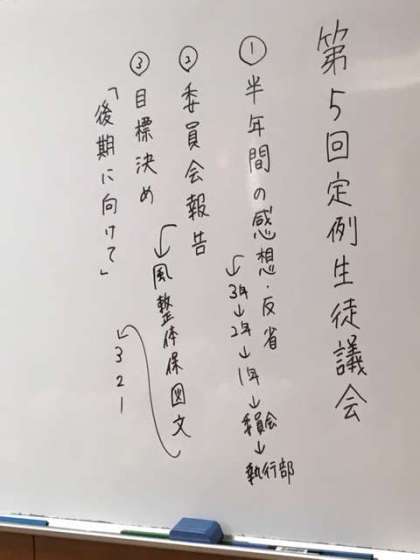 第5回定例生徒議会
①半年間の感想・反省
↳3年→2年→1年→委員会→執行部
②委員会報告
↳風整体保図文
↳321
③目標決め
「後期に向けて」